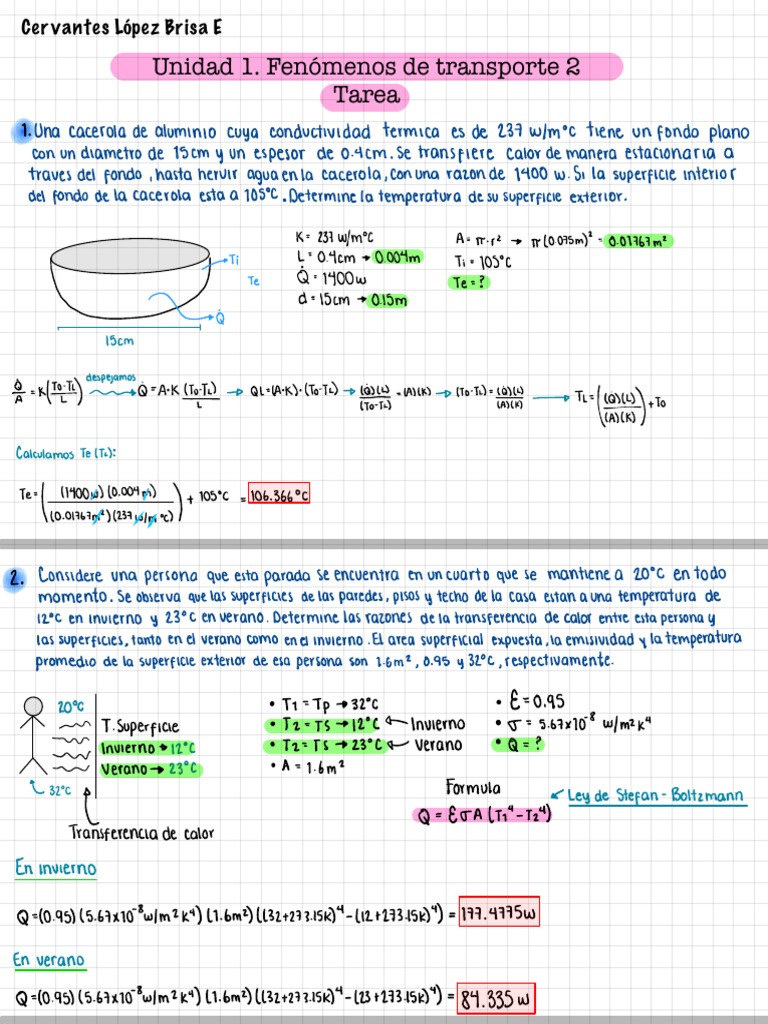 Cervantes López Brisa E
Unidad 1. Fenómenos de transporte 2
Tarea
1. Una cacerola de aluminio cuya conductividad termica es de 237 w/m°c tiene un fondo plano
con un diametro de 15cm y un espesor de 0.4cm. Se transfiere calor de manera estacionaria a
traves del fondo, hasta hervir agua en la cacerola, con una razon de 1400 w. Si la superficie interior
del fondo de la cacerola esta a 105°C. Determine la temperatura de su superficie exterior.
Ti
Te
Q̇
15cm
K = 237 w/m°C
L = 0.4cm → 0.004m
Q̇ = 1400w
d = 15cm → 0.15m
A = π·r² → π(0.075m)² = 0.01767m²
Ti = 105°C
Te = ?
Q̇/A = K((To-TL)/L) despejamos Q̇ = A·K (To-TL)/L → QL = (A·K)·(To-TL) → (Q̇)(L)/(To-TL) = (A)(K) → (To-TL) = (Q̇)(L)/(A)(K) → TL = ((Q̇)(L)/(A)(K)) + To
Calculamos Te (TL):
Te = ((1400w)(0.004m)/(0.01767m²)(237w/m°c)) + 105°C = 106.366°C
2. Considere una persona que esta parada se encuentra en un cuarto que se mantiene a 20°C en todo
momento. Se observa que las superficies de las paredes, pisos y techo de la casa estan a una temperatura de
12°C en invierno y 23°C en verano. Determine las razones de la transferencia de calor entre esta persona y
las superficies, tanto en el verano como en el invierno. El area superficial expuesta, la emisividad y la temperatura
promedio de la superficie exterior de esa persona son 1.6m², 0.95 y 32°C, respectivamente.
20°C
T. Superficie
Invierno → 12°C
Verano → 23°C
32°C
Transferencia de calor
• T1 = Tp → 32°C
• T2 = Ts → 12°C ← Invierno
• T2 = Ts → 23°C ← Verano
• A = 1.6m²
• Ɛ = 0.95
• σ = 5.67x10⁻⁸ w/m²k⁴
• Q = ?
Formula
Q = ƐσA (T1⁴ - T2⁴)
Ley de Stefan - Boltzmann
En invierno
Q = (0.95)(5.67x10⁻⁸w/m²k⁴)(1.6m²)((32+273.15k)⁴-(12+273.15k)⁴) = 177.4775w
En verano
Q = (0.95)(5.67x10⁻⁸w/m²k⁴)(1.6m²)((32+273.15k)⁴-(23+273.15k)⁴) = 84.335w